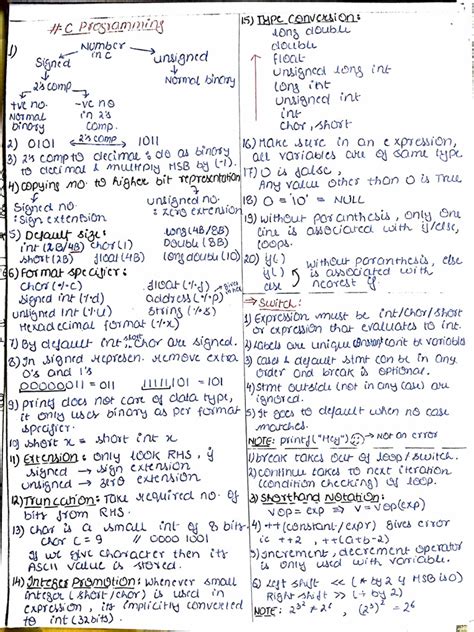 # C Programming
1) Number in C
Signed
unsigned
2's comp
Normal binary
+ve no.
-ve no
Normal binary
in 2's comp.
2) 0101 2's comp 1011
3) 2's comp to decimal : do as binary
to decimal & multiply MSB by (-1).
4) Copying no. to higher bit representation
Signed no.
: Sign extension
unsigned no.
: zero extension
5) Default size:
long (4B/8B)
int (2B/4B) char (1)
Double (8B)
short (2B) float (4B) long double (10)
6) Format specifier:
char (%c) float (%f)
signed int (%d) address (%p)
unsigned int (%u) string (%s)
Hexadecimal format (%x)
7) By default int, short, char are signed.
8) In signed represen. remove extra
0's and 1's
00000011 = 011 11111101 = 101
9) printf does not care of data type,
it only uses binary as per format
specifier.
10) short x = short int x
11) Extension: only look RHS, if
signed → sign extension
unsigned → zero extension
12) Truncation: Take required no. of
bits from RHS.
13) char is a small int of 8 bits
char C = 9 // 0000 1001
If we give character then its
ASCII value is stored.
14) Integer Promotion: Whenever small
integer (short/char) is used in
expression, its implicitly converted
to int (32 bits).
15) Type conversion:
long double
double
float
unsigned long int
long int
unsigned int
int
char, short
16) Make sure in an expression,
all variables are of same type.
17) 0 is false,
Any value other than 0 is True
18) 0 = '\0' = NULL
19) Without paranthesis, only one
line is associated with if/else,
loops.
20) if(
if(
else
Without paranthesis, else
is associated with
nearest if.
→ Switch:
1) Expression must be int/char/short
or expression that evaluates to int.
2) Labels are unique can't be variable
3) Cases & default stmt can be in any
order and break is optional.
4) Stmt outside (not in any case) are
ignored.
5) It goes to default when no case
matches.
NOTE: printf("Hey"); → Not an error
1) break takes out of loop/switch.
2) continue takes to next iteration
(condition checking) of loop.
3) Shorthand Notation:
v op= exp ⇒ v = v op (exp)
4) ++(constant/expr) gives error
ie ++2, ++(a+b-2)
5) Increment, decrement operator
is only used with variable.
6) left shift << (* by 2 if MSB is 0)
Right shift >> (÷ by 2)
NOTE: